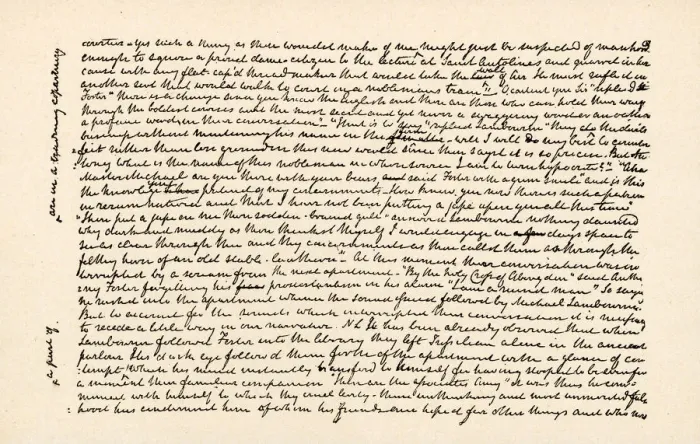 courtiers - Yes such a thing as thou wouldst make of me might just be suspected of manhood
enough to squire a proud dame-citizen to the lecture at Saint Antolines and quarrel in her
cause with any flat-cap'd thread maker that would take the wall of her He must ruffle it in
another sort that would walk to court in a noblemans train" "O content you Sir" replied
Foster "there is a change since you knew the english and there are those who can hold their way
through the boldest courses and the most secret and yet never a swaggering word or an oath or
a profane word in their conversation" "That is to say" replied Lambourne "they do the devils
business without mentioning his name in the firm - well I will do my best to counter
feit rather than lose ground in this new world since thou sayst it is so precise. But
what is the name of this nobleman in whose service I am to turn hypocrite?" "Aha
Master Michael are you there with your bears said Foster with a grim smile" and is this
the knowledge you pretend of my concernments - How know you now there is such a person
in rerum natura and that I have not been putting a jape upon you all this time"
"Thou put a jape on me thou sodden-brained gull" answered Lambourne nothing daunted
why dark and muddy as thou thinkst thyself I would engage in a days space to
see as clear through thee and thy concernments as thou callst them as through the
filthy horn of an old stable-lanthorn" At this moment their conversation was in
terrupted by a scream from the next apartment. "By the holy Cross of Abingdon" said Antho
ny Foster forgetting his protestantism in his alarm "I am a ruined man" So saying
he rushed into the apartment whence the sound issued followed by Michael Lambourne.
But to account for the sounds which interrupted their conversation it is necessary
to recede a little way in our narrative. NL It has been already observed that when
Lambourne followed Foster into the library they left Tressilian alone in the ancient
parlour His dark eye followed them forth of the apartment with a glance of con
tempt x which his mind instantly transferred to himself for having stooped to be even for
a moment their familiar companion "These are the associates Amy" it was thus he com
muned with himself to which thy cruel levity - thine unthinking and most unmerited false
hood has condemned him of whom his friends once hoped far other things and who now
x are in a trading copartnery
x a part of